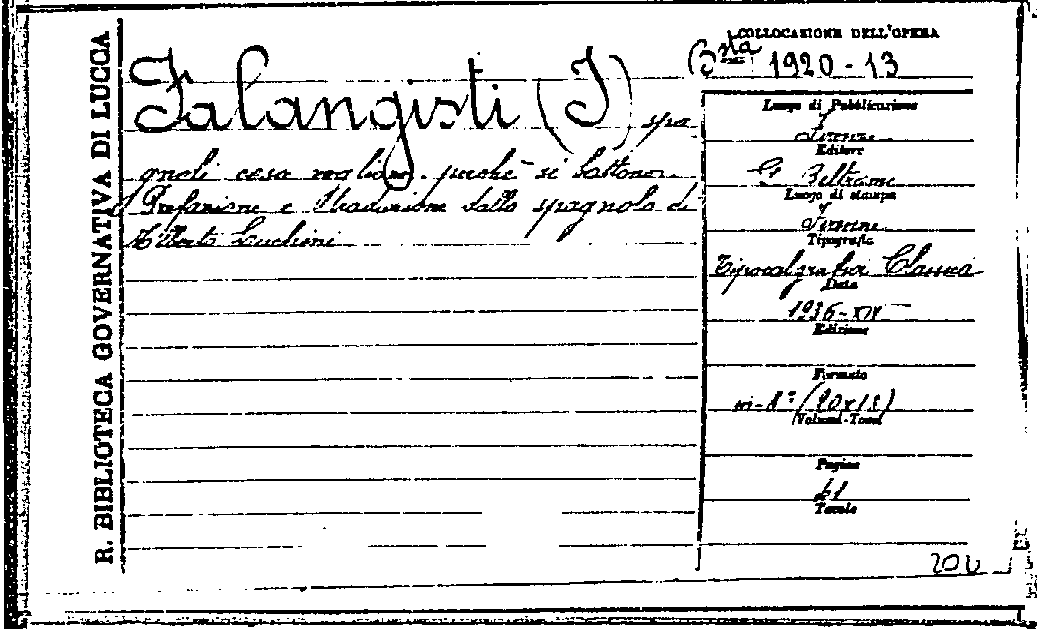 R. BIBLIOTECA GOVERNATIVA DI LUCCA
Falangisti (I) spa
gnoli cosa vogliono. perchè si battono.
Prefazione e traduzione dallo spagnolo di
Alberto Luchini
COLLOCAZIONE DELL'OPERA
Bsta 1920-13
Luogo di Pubblicazione
Firenze
Editore
G. Beltrami
Luogo di stampa
Firenze
Tipografia
Tipocalgrafia Classica
Data
1936-XIV
Edizione
Formato
in-8° (20x13)
(Volumi-Tomi)
Pagine
Tavole